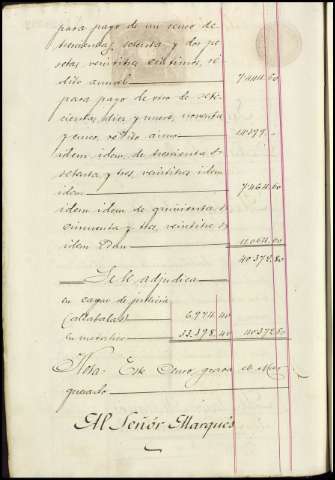 para pago de un censo de
trescientas setenta y dos pe-
setas, veintitres centimos, re-
dito anual 7444.60
para pago de otro de sete-
cientas diez y nueve, noventa
y cinco, redito anual 14399.
idem, idem, de trescienta s
setenta y tres, veintitres idem
idem 7464.60
idem idem de quinientas
cincuenta y tres, veintitres
idem Edan 11.064.60
40372.80
Se le adjudica
en cargas de justicia
(alcabalas) 6974.40
en metalico 33.398.40 40372.80
Nota: Este Censo, grava el Mar-
quesado
Al Señor Marqués